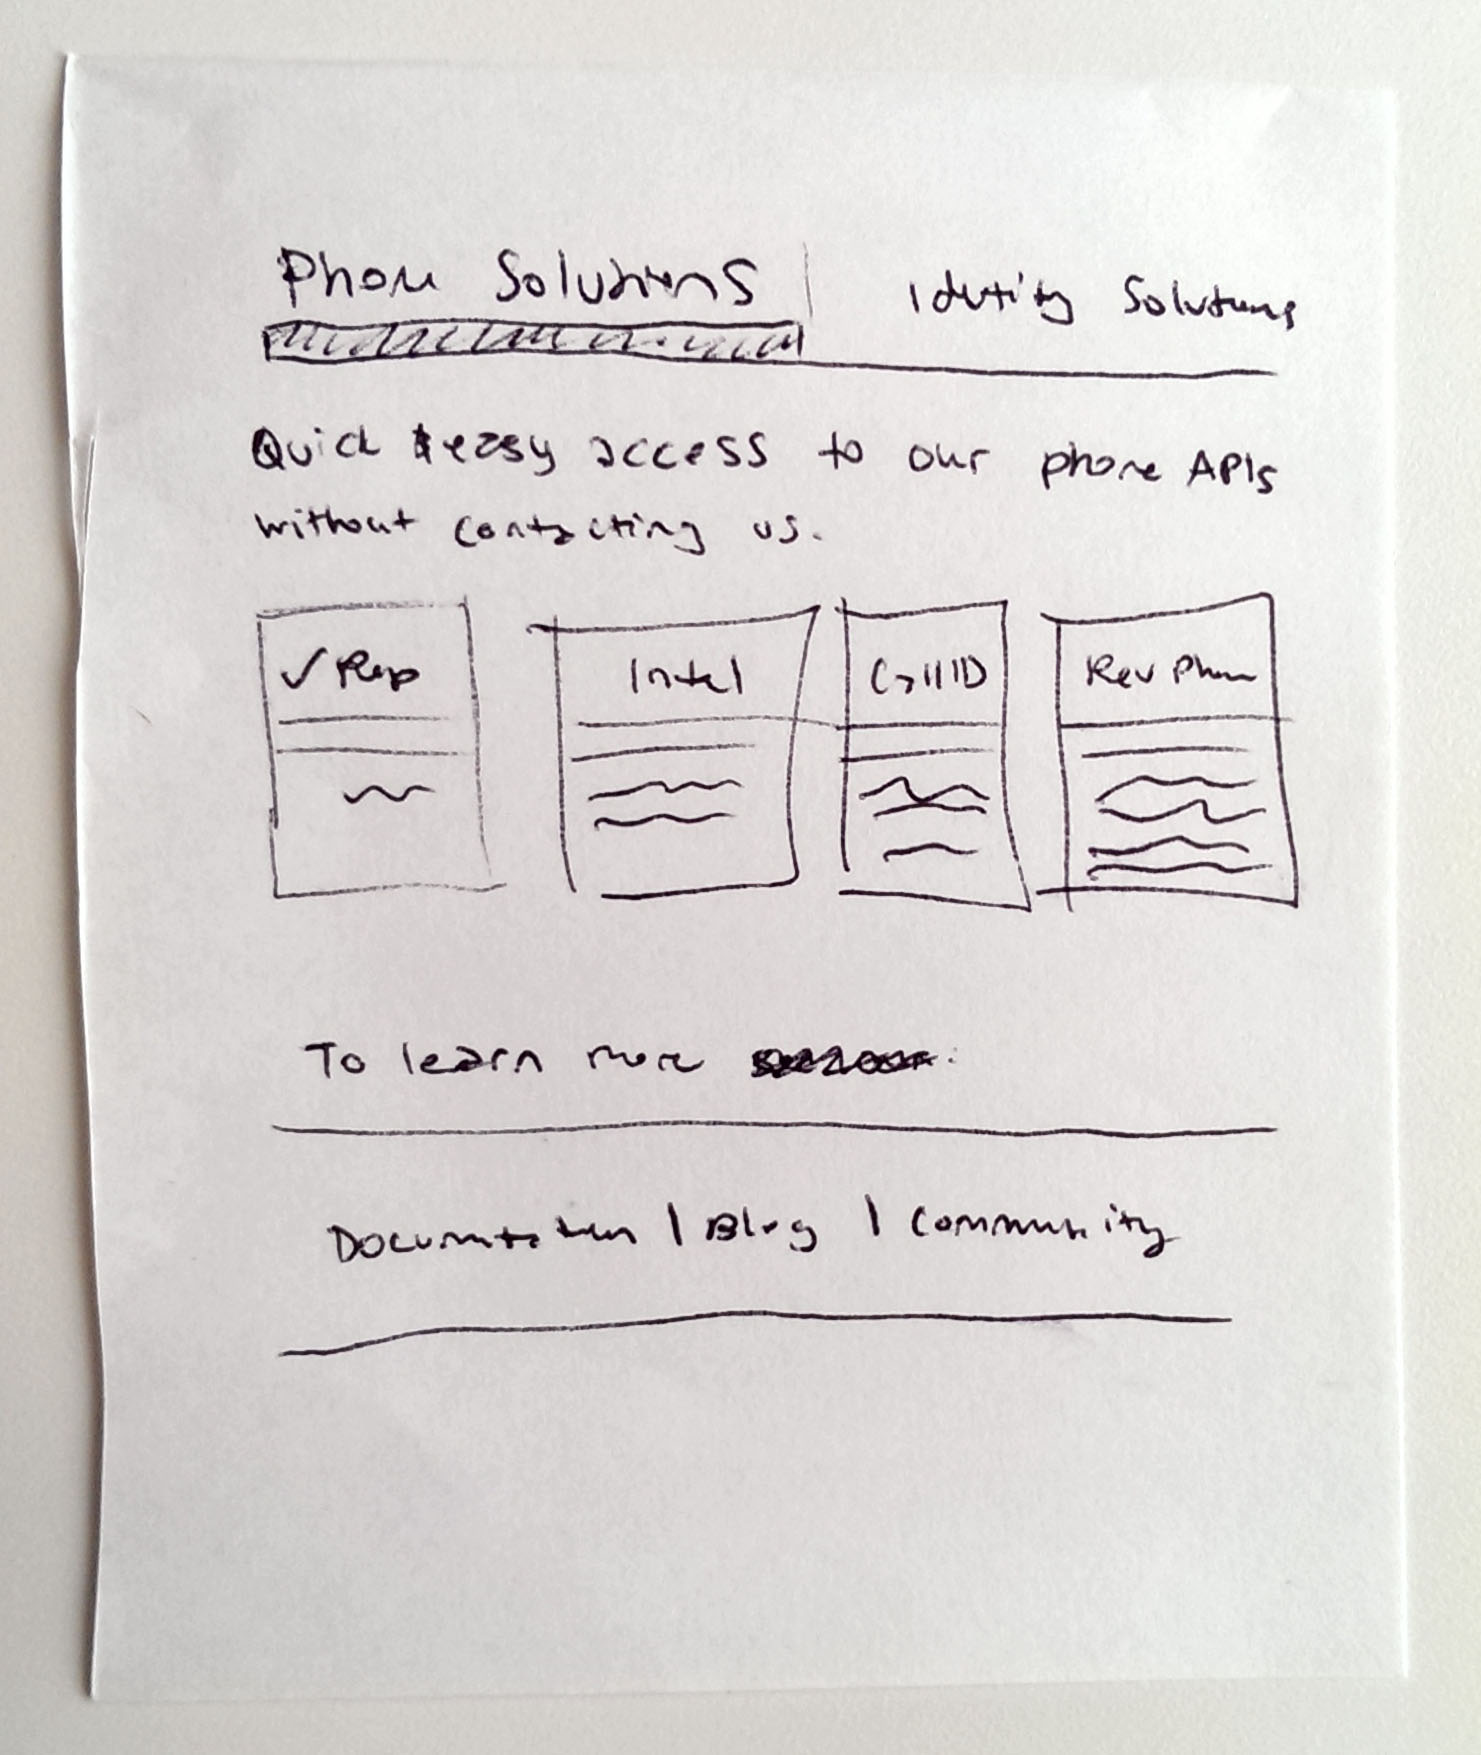 Phone Solutions | Identity Solutions
Quick & easy access to our phone APIs
without contacting us.
✓ Rep
Intel
CallID
Rev Phone
To learn more
Documentation | Blog | Community